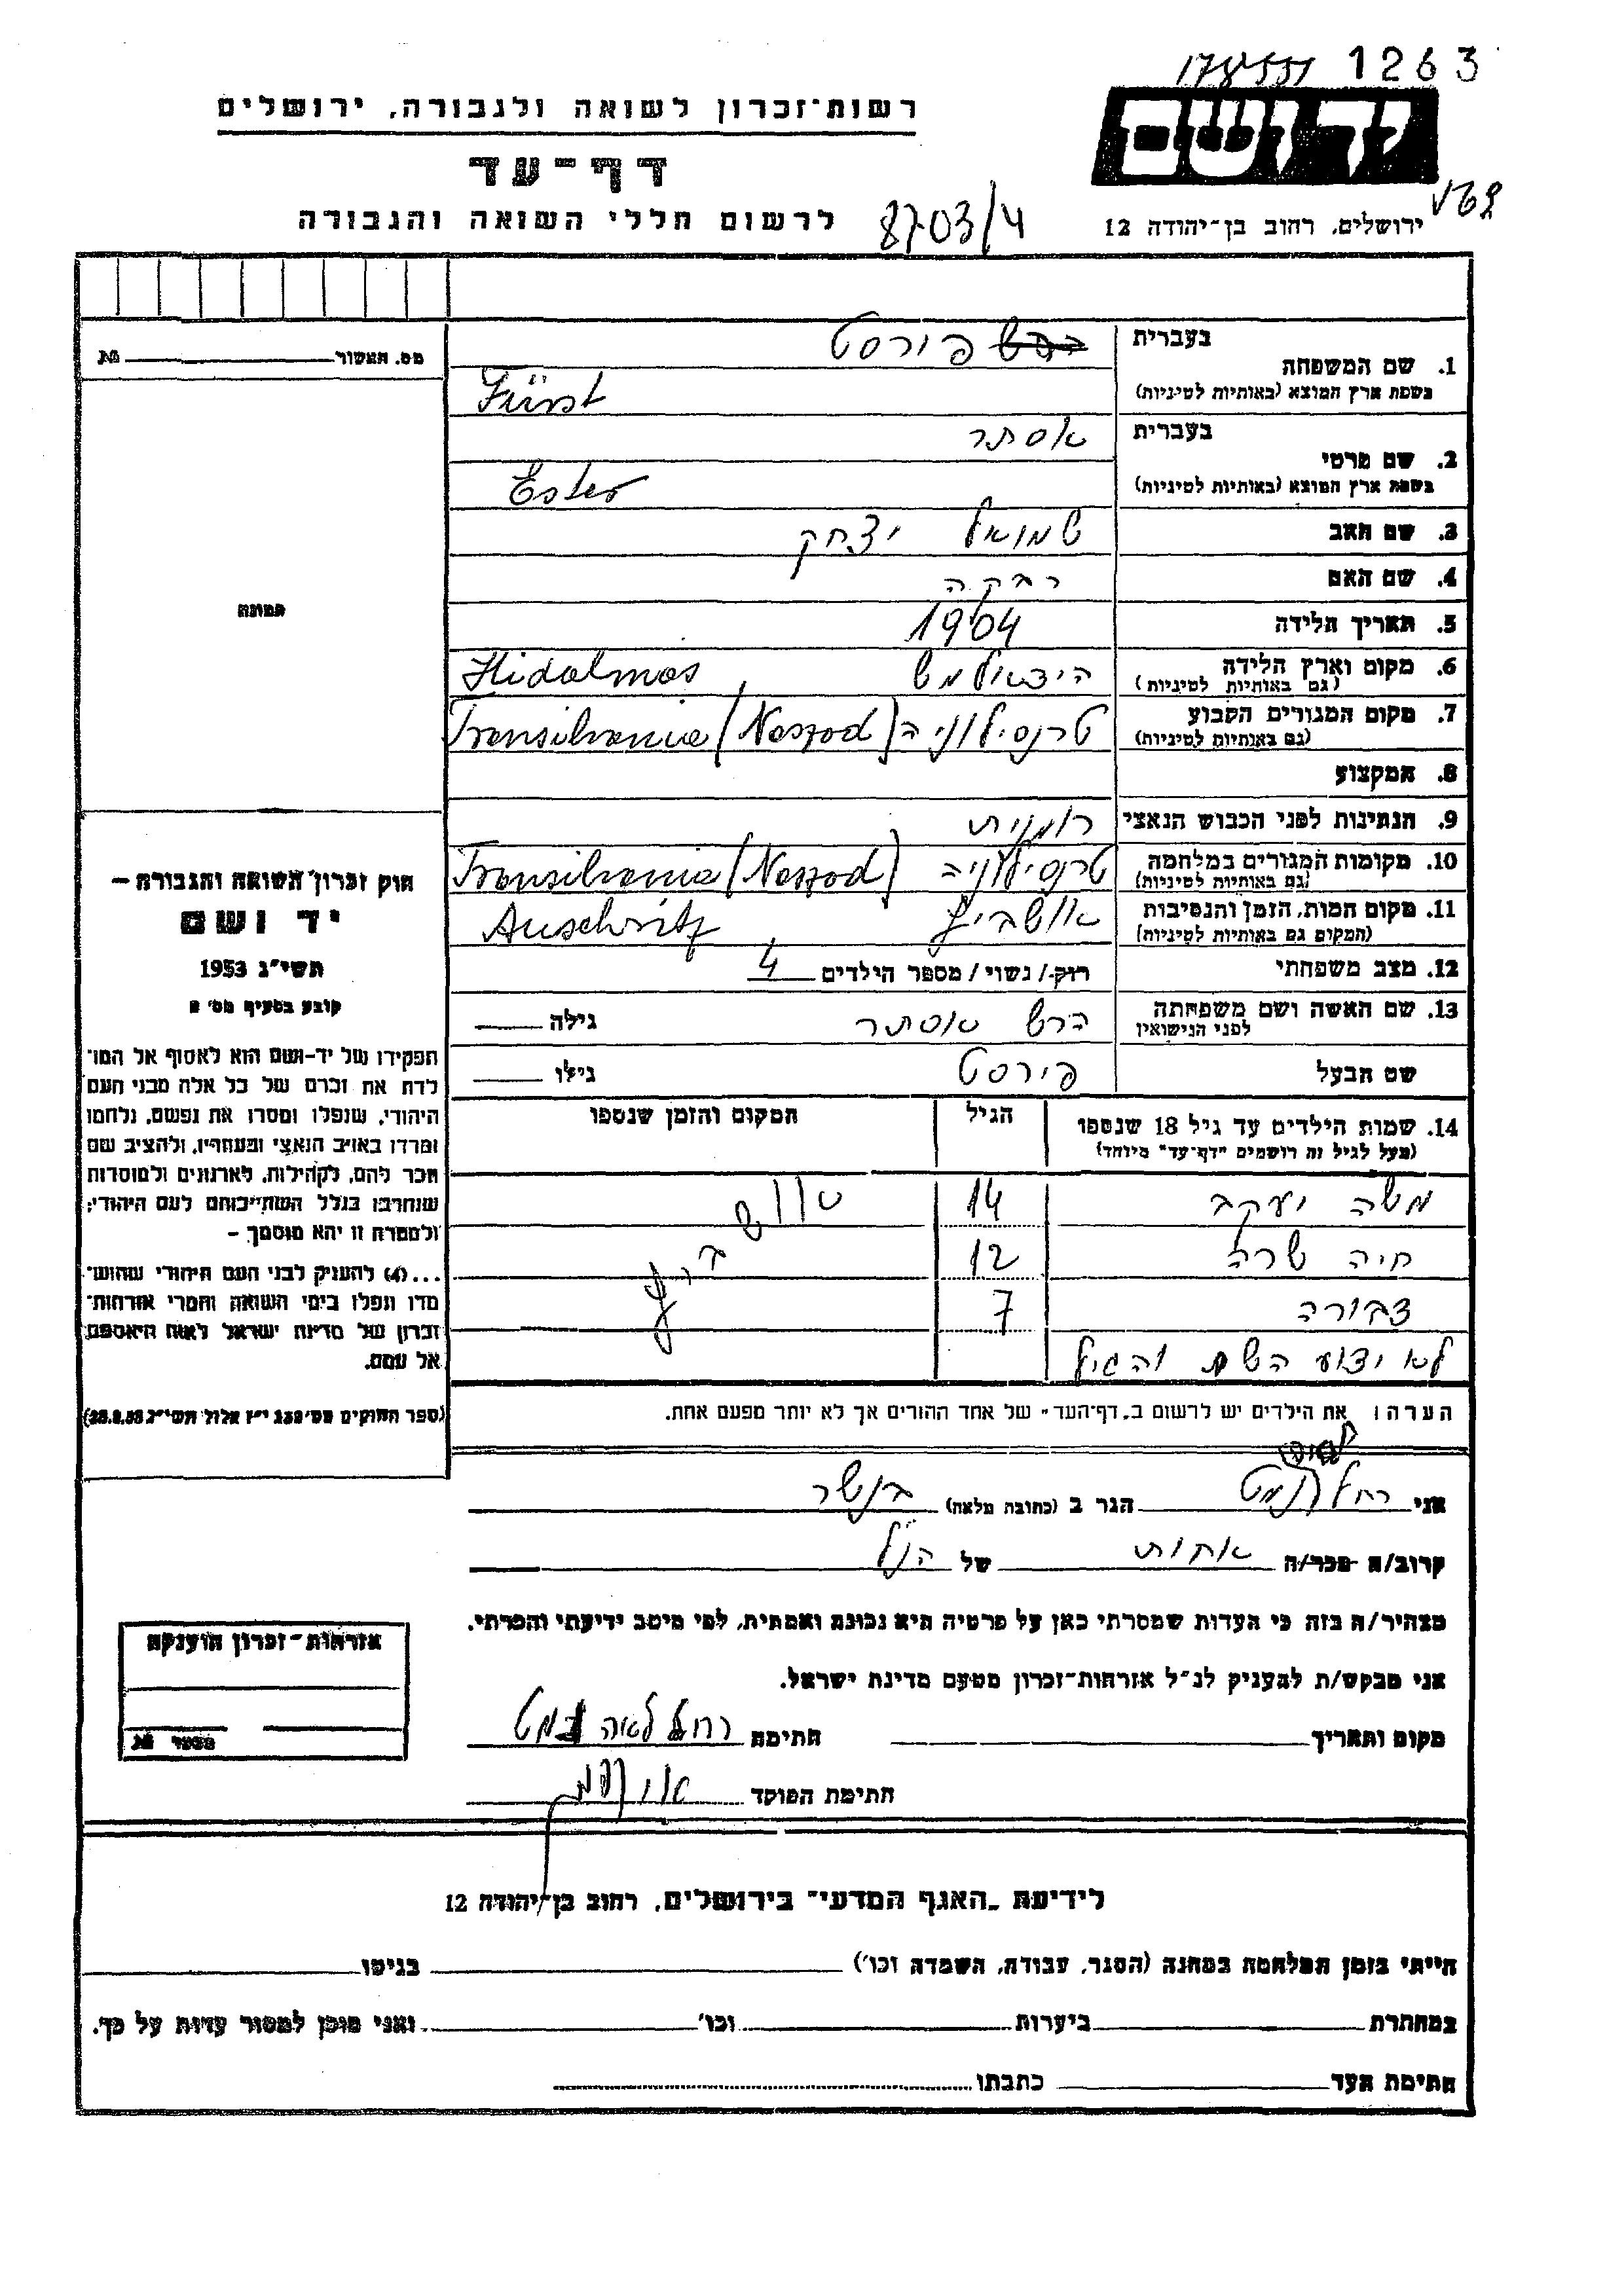 1263
רשות-זכרון לשואה ולגבורה, ירושלים
יד ושם
דף-עד
לרשום חללי השואה והגבורה
8703/4
ירושלים, רחוב בן-יהודה 12
מס. האשור
1. שם המשפחה
בעברית פירסט
בשפת ארץ המוצא (באותיות לטיניות) Fürst
2. שם פרטי
בעברית אסתר
בשפת ארץ המוצא (באותיות לטיניות) Ester
3. שם האב שמואל יצחק
4. שם האם רבקה
תמונה
5. תאריך הלידה 1904
6. מקום וארץ הלידה (גם באותיות לטיניות) הידאלמש Hidalmas
7. מקום המגורים הקבוע (גם באותיות לטיניות) טרנסילווניה (Transilvania (Naszod
8. המקצוע
9. הנתינות לפני הכבוש הנאצי רומנית
10. מקומות המגורים במלחמה (גם באותיות לטיניות) טרנסילווניה (Transilvania (Naszod
11. מקום המות, הזמן והנסיבות (המקום גם באותיות לטיניות) אושביץ Auschvitz
12. מצב משפחתי רווק / נשוי / מספר הילדים 4
13. שם האשה ושם משפחתה לפני הנישואין הרש אסתר גילה
שם הבעל פירסט גילו
14. שמות הילדים עד גיל 18 שנספו
(מעל לגיל זה רושמים "דף-עד" מיוחד)
הגיל
המקום והזמן שנספו
משה יעקב 14 אושביץ
חיה שרה 12
דבורה 7
לא ידוע השם והגיל
הערה: את הילדים יש לרשום ב"דף-העד" של אחד ההורים אך לא יותר מפעם אחת.
חוק זכרון השואה והגבורה –
יד ושם
תשי"ג 1953
קובע בסעיף מס' 2
תפקידו של יד-ושם הוא לאסוף אל המו־
לדת את זכרם של כל אלה מבני העם
היהודי, שנפלו ומסרו את נפשם, נלחמו
ומרדו באויב הנאצי ובעוזריו, ולהציב שם
וזכר להם, לקהילות, לארגונים ולמוסדות
שנחרבו בגלל השתייכותם לעם היהודי;
ולמטרה זו יהא מוסמך –
...(4) להעניק לבני העם היהודי שהוש־
מדו ונפלו בימי השואה והמרי אזרחות־
זכרון של מדינת ישראל לאות היאספם
אל עמם.
(ספר החוקים מס' 132 י"ז אלול תשי"ג 28.8.53)
אני רחל הגר ב (כתובת מלאה) בנשר
קרוב/ה מכר/ה אחות של הנ"ל
מצהיר/ה בזה כי העדות שמסרתי כאן על פרטיה היא נכונה ואמתית, לפי מיטב ידיעתי והכרתי.
אני מבקש/ת להעניק לנ"ל אזרחות-זכרון מטעם מדינת ישראל.
מקום ותאריך חתימה רחל לאה
חתימת הפוקד
אזרחות-זכרון הוענקה
לידיעת "האגף המדעי" בירושלים, רחוב בן-יהודה 12
הייתי בזמן המלחמה במחנה (הסגר, עבודה, השמדה וכו') בגיטו
במחתרת ביערות וכו' ואני מוכן למסור עדות על כך.
חתימת העד כתבתו